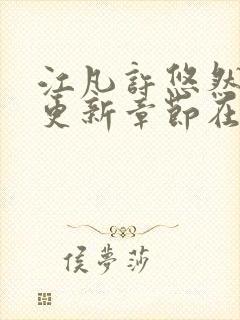 江凡許悠然
更新章節在
侯夢莎